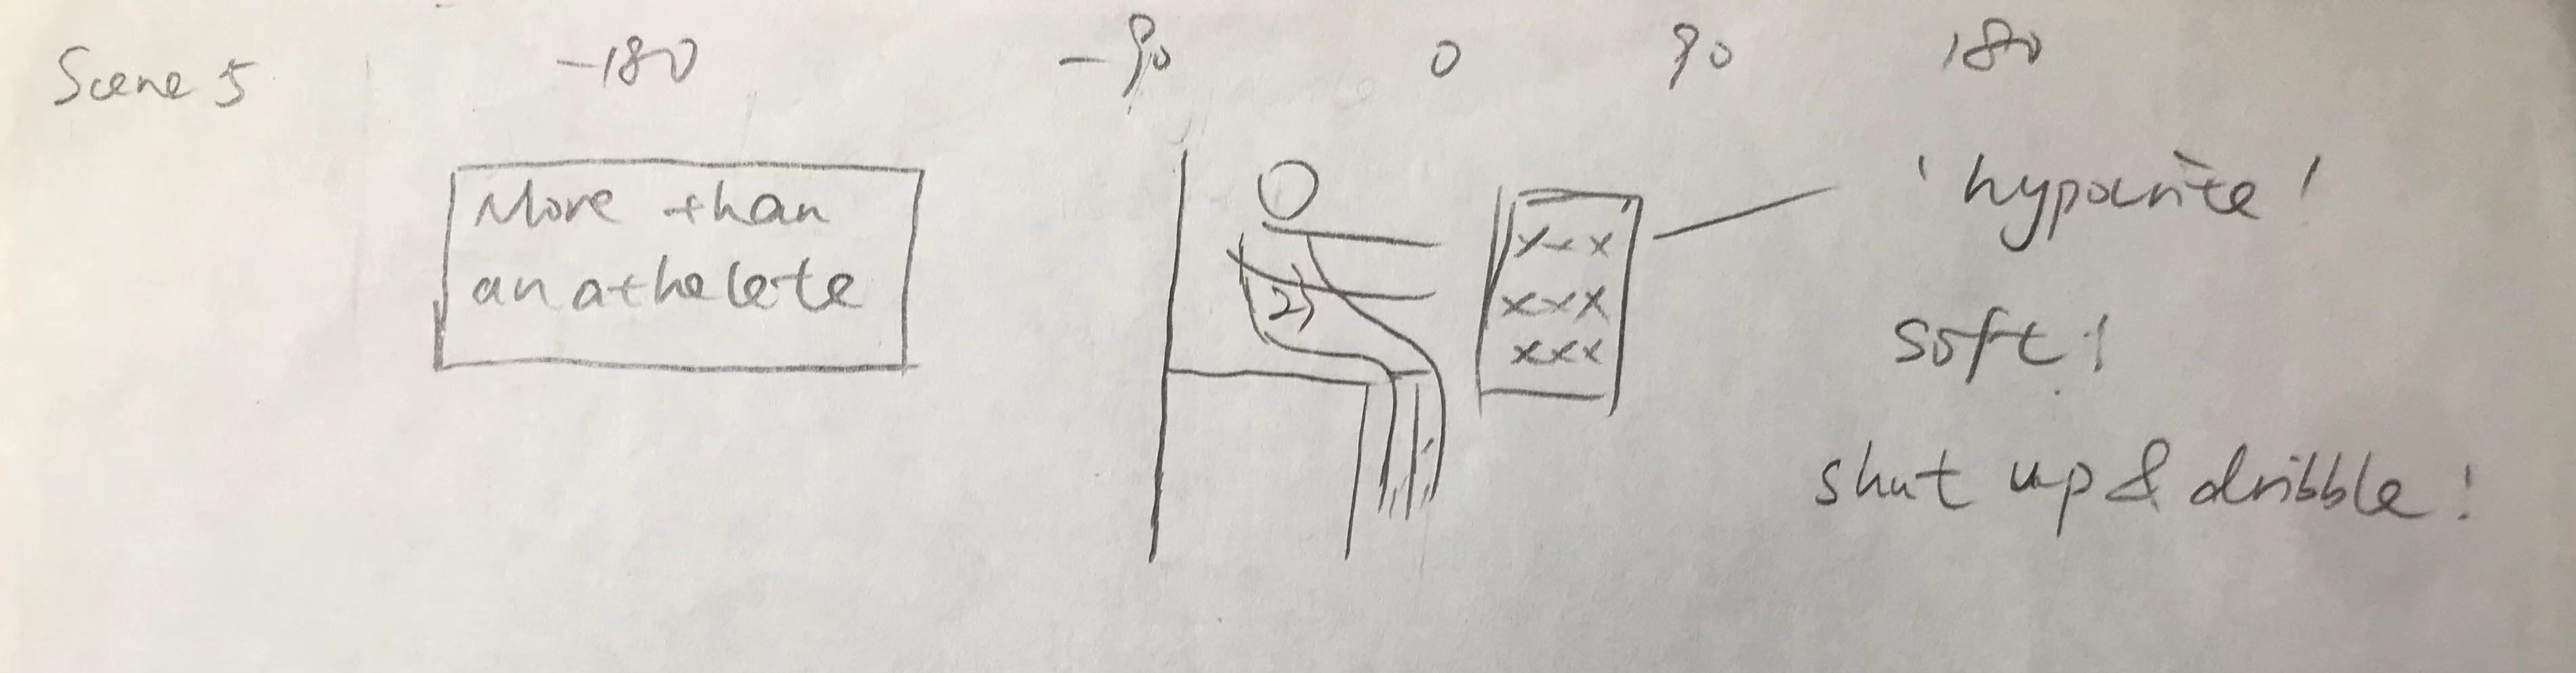 Scene 5
-180 -90 0 90 180
More than
an athelete
23
xxx
xxx
xxx
'hypocrite!
soft!
shut up & dribble!